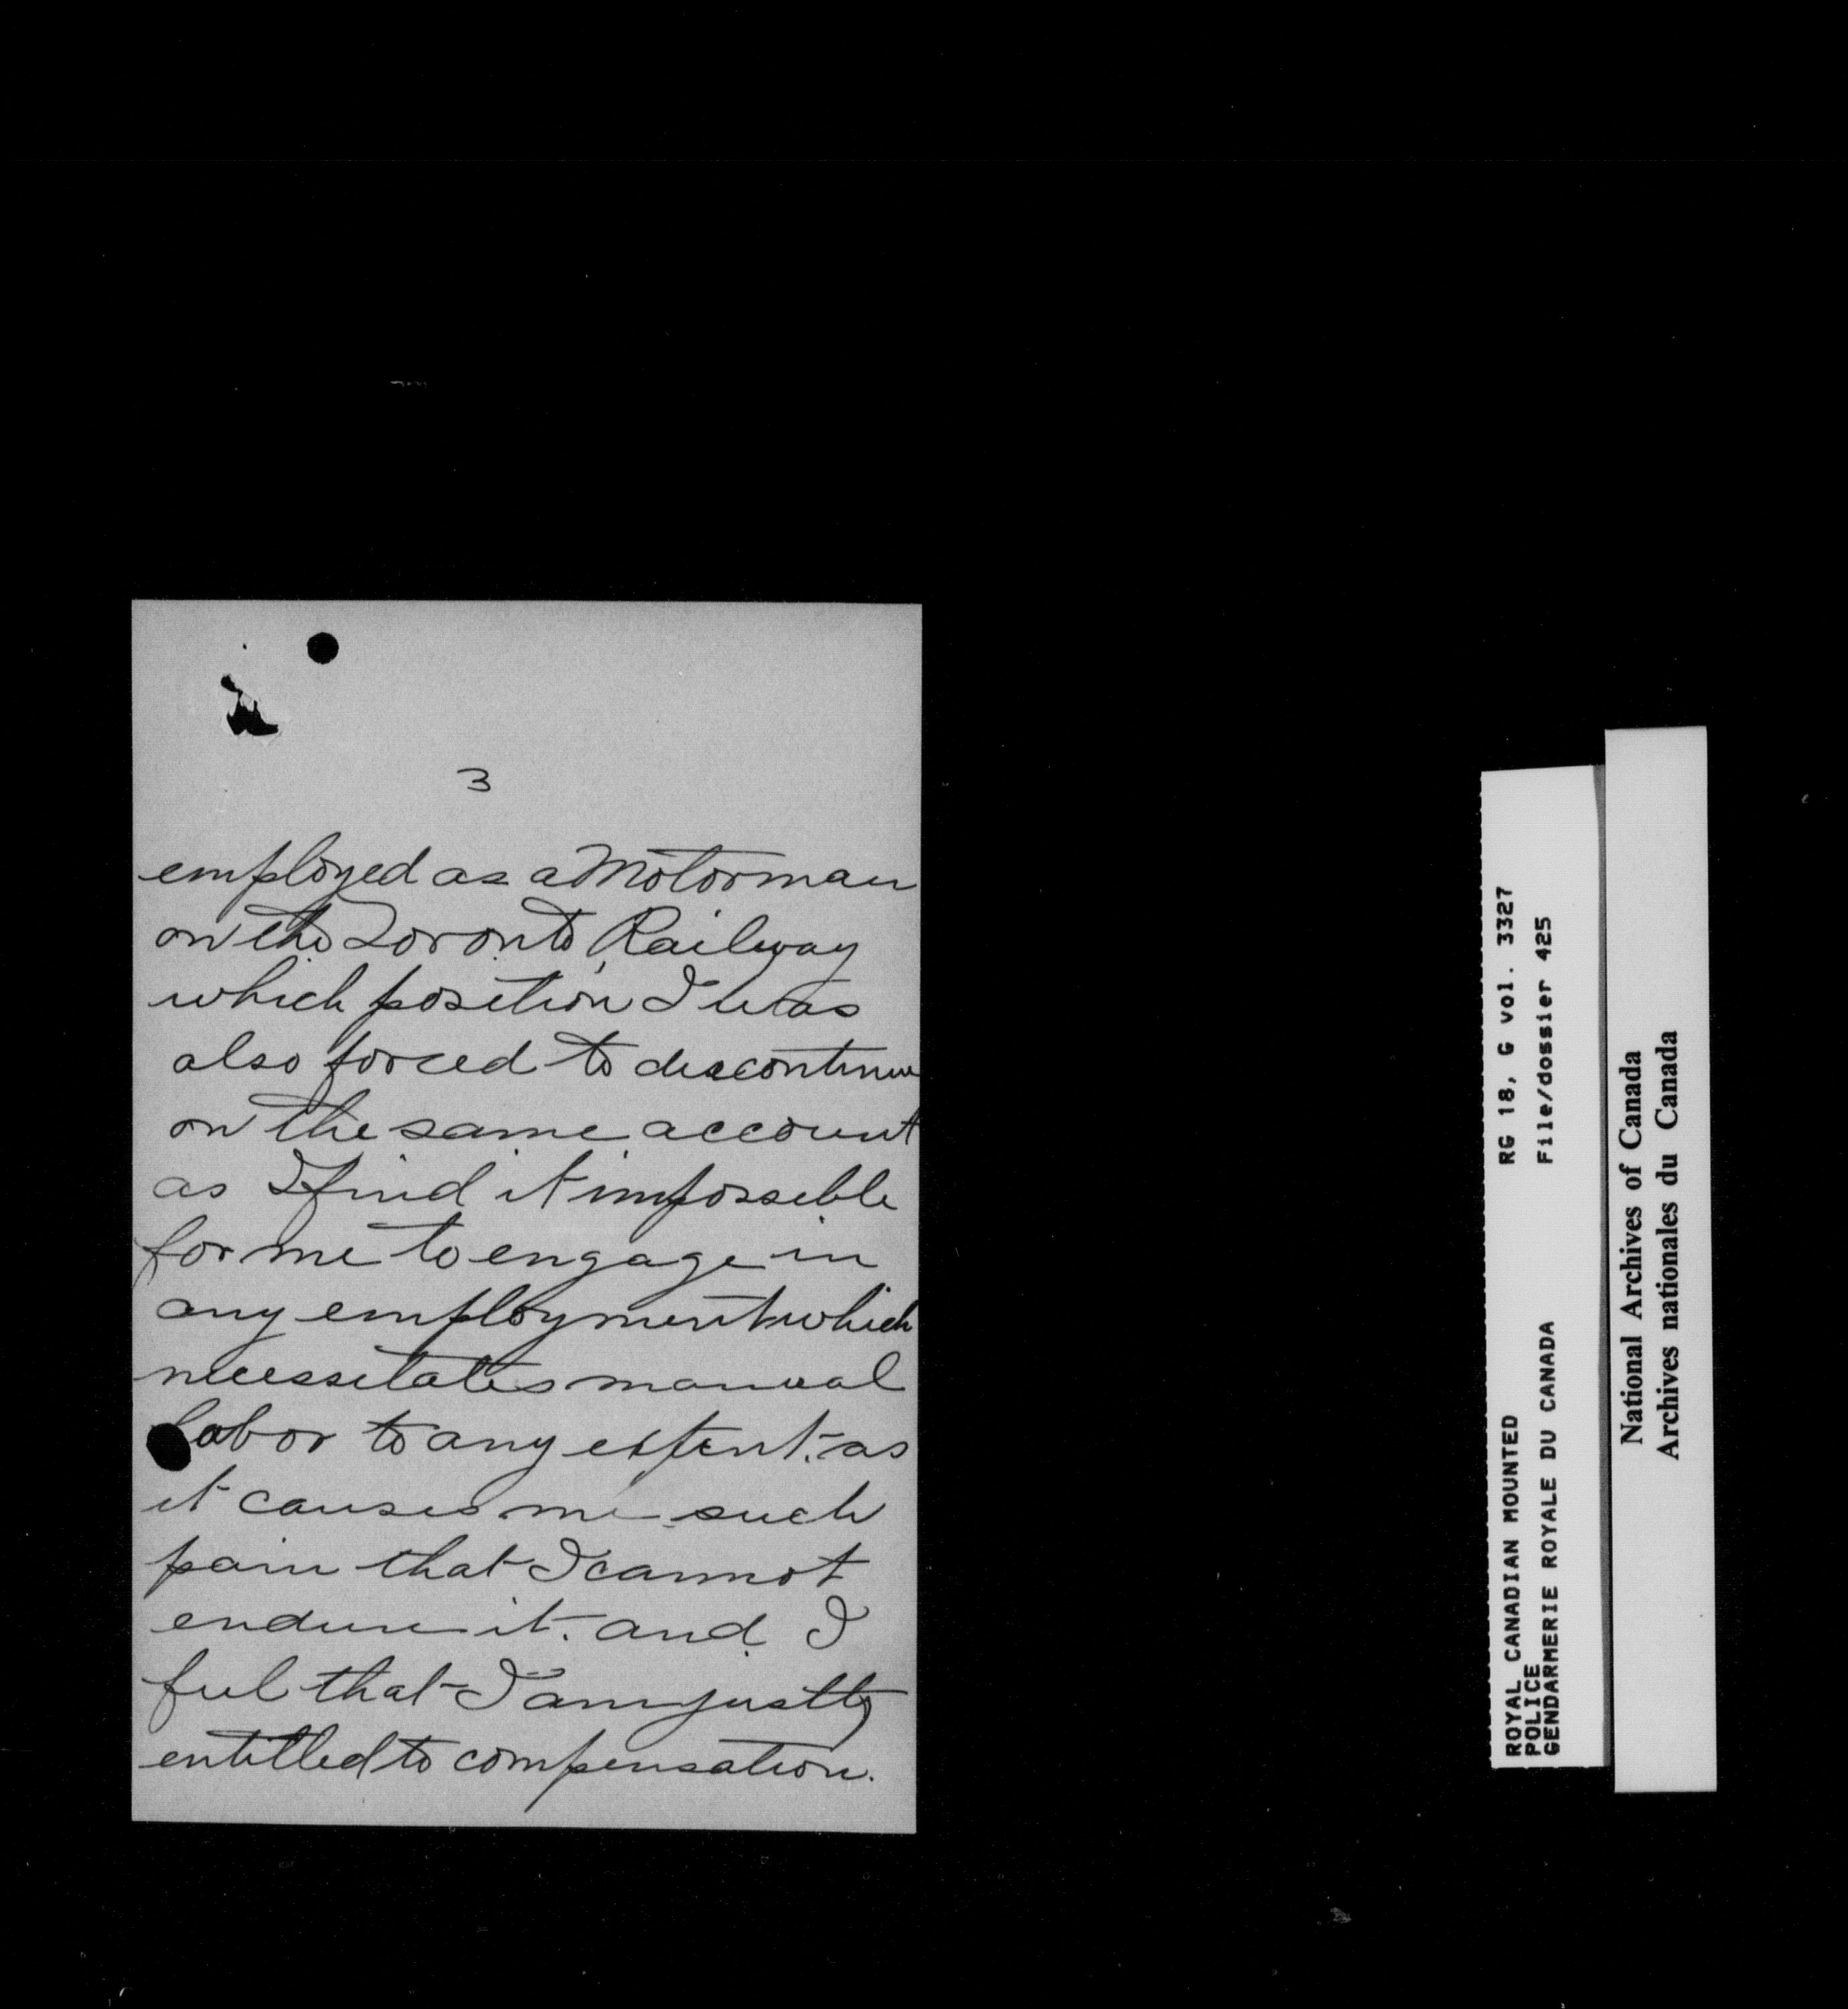 3
employed as a Motorman
on the Toronto Railway
which position I was
also forced to discontinue
on the same account
as I find it impossible
for me to engage in
any employment which
necessitates manual
labor to any extent. as
it causes me such
pain that I cannot
endure it. and I
feel that I am justly
entitled to compensation.
ROYAL CANADIAN MOUNTED RG 18, G vol. 3327
POLICE File/dossier 425
GENDARMERIE ROYALE DU CANADA
National Archives of Canada
Archives nationales du Canada